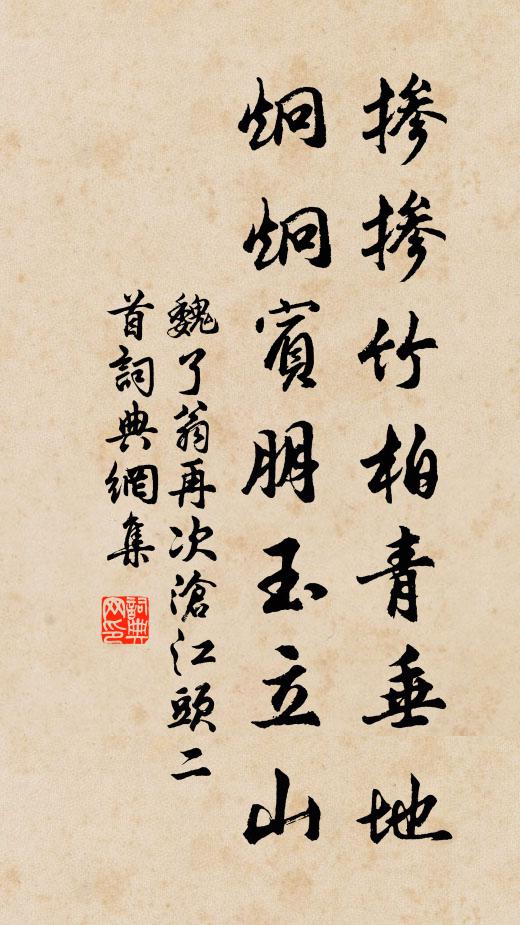 掺掺竹柏青垂地
炯炯賓朋玉立山
魏了翁再次滄江頭二
首詞典網集
詞典网印